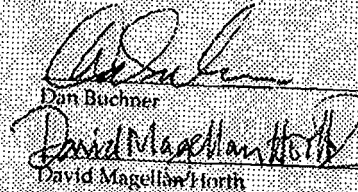 Dan Buchner
David Magellan Horth
David Magellan Horth